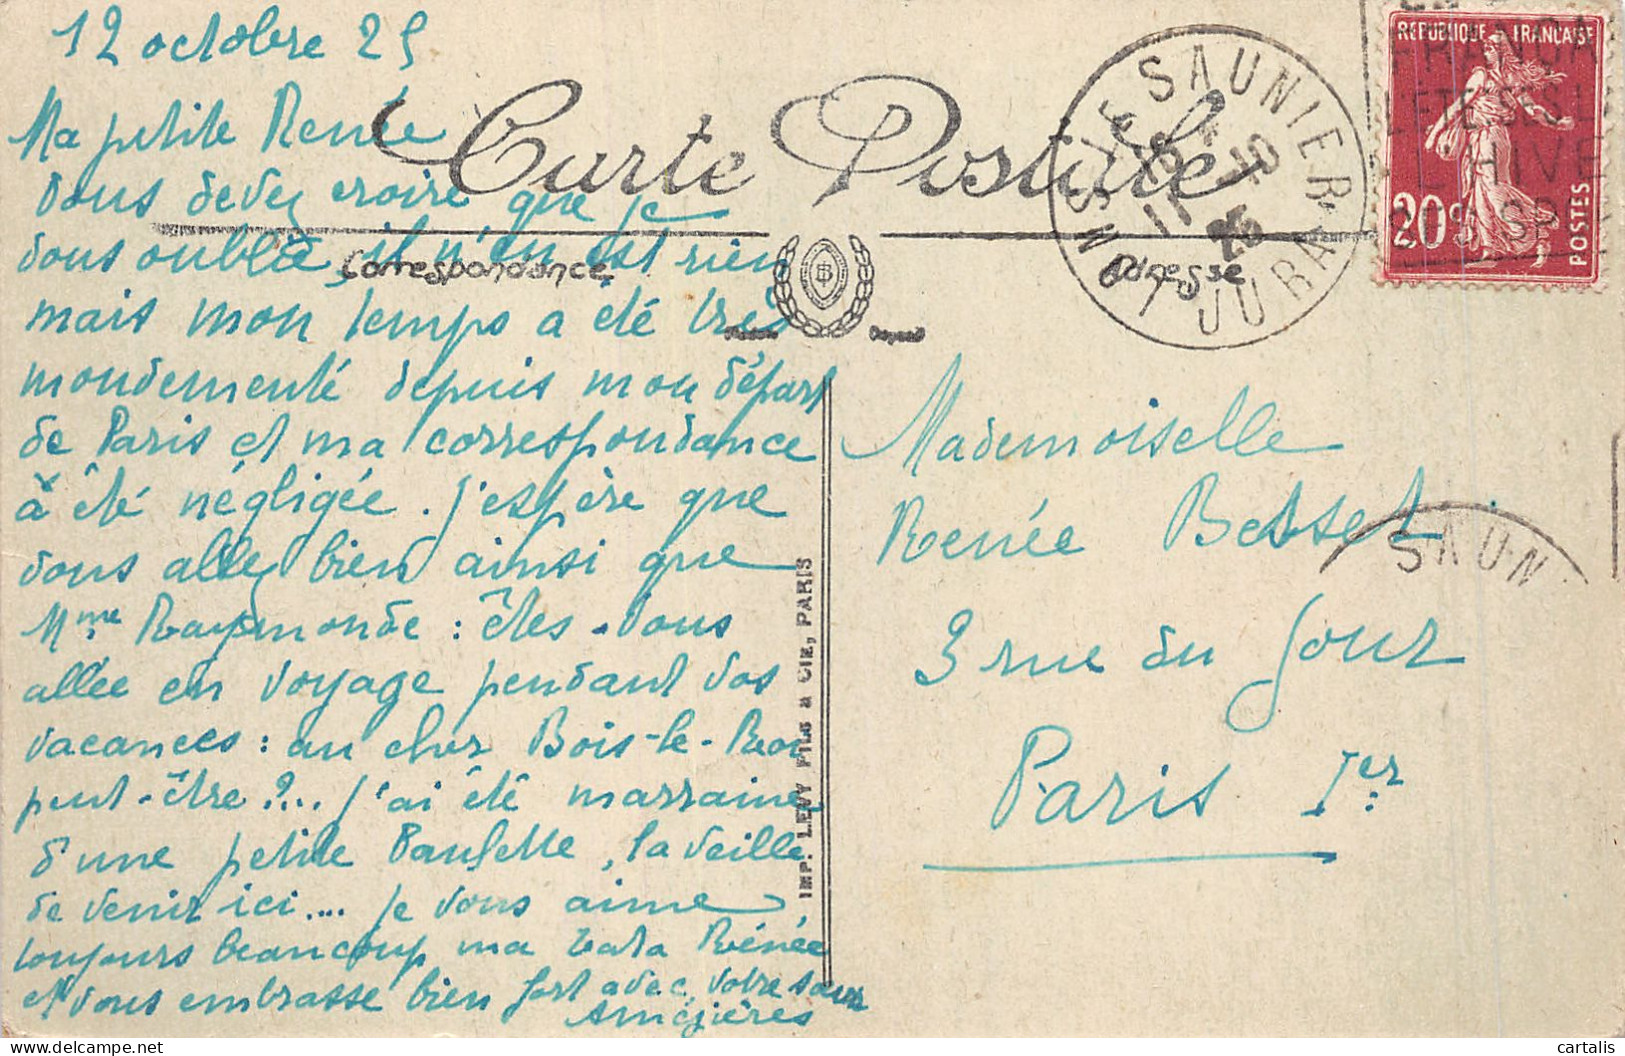 12 octobre 25
Ma petite Renée
vous devez croire que je
vous oublie, il n'en est rien
mais mon temps a été très
mondementé depuis mon départ
de Paris et ma correspondance
a été négligée. J'espère que
vous allez bien ainsi que
Mme Raymonde : êtes-vous
allée en voyage pendant vos
vacances : au cher Bois-le-Roi
peut-être ?... J'ai été marraine
d'une petite Paulette, la veille
de venir ici.... je vous aime
toujours beaucoup ma Rénée
et vous embrasse bien fort avec votre sœur
Carte Postale
Correspondance
Adresse
IMP. LEVY FILS & CIE, PARIS
LONS-LE-SAUNIER
11 10 25
JURA
REPUBLIQUE FRANCAISE
20c POSTES
Mademoiselle
Renée Besset
3 rue du Jour
Paris Ier
SAUN
cartalis